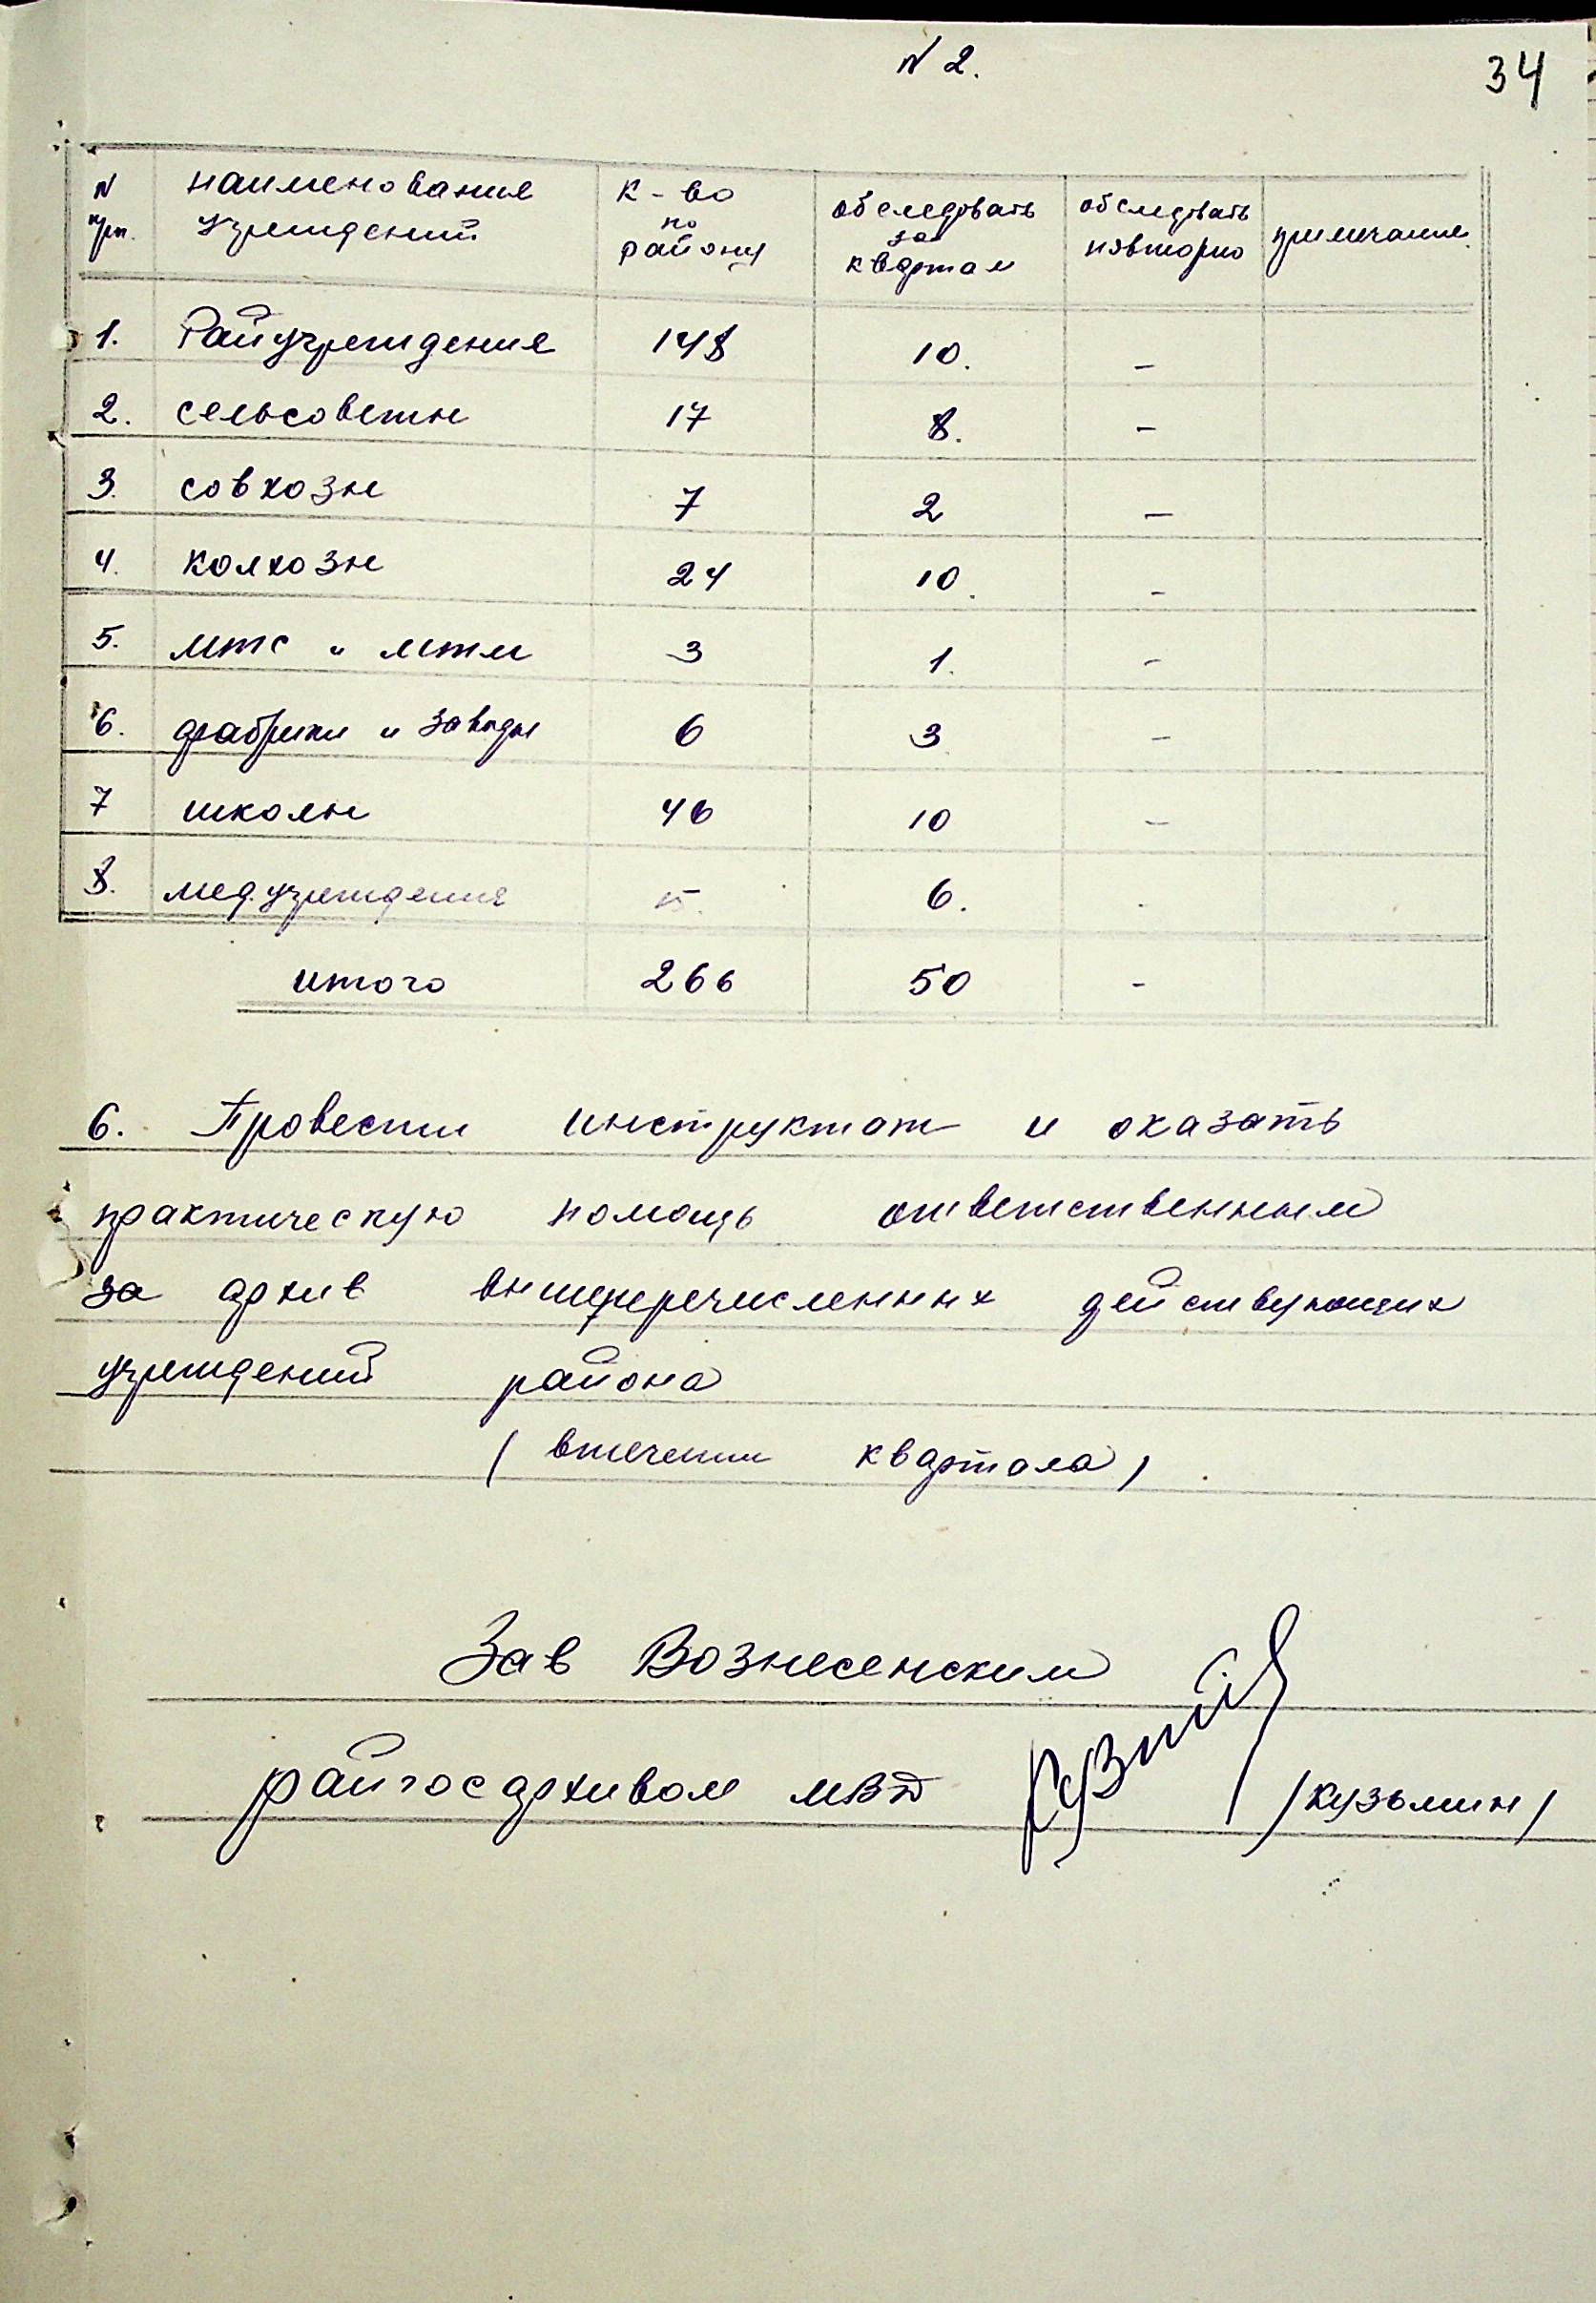 N 2.
34
N п/п. наименование учреждений к-во по району обследовать за квартал обследовать повторно примечание
1. Райучреждение 148 10. -
2. сельсоветы 17 8. -
3. совхозы 7 2 -
4. колхозы 24 10. -
5. мтс и мтм 3 1. -
6. фабрики и заводы 6 3 -
7 школы 46 10 -
8. мед.учреждения 15. 6. -
итого 266 50 -
6. Провести инструктаж и оказать
практическую помощь ответственным
за архив вышеперечисленных действующих
учреждений района
( втечении квартала)
Зав Вознесенским
райгосархивом мвд /кузьмин/